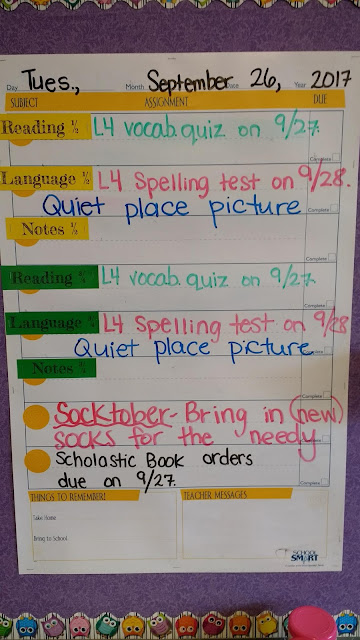 Day Tues., Month September Date 26, Year 2017
SUBJECT ASSIGNMENT DUE
Reading ½ L4 vocab. quiz on 9/27.
Complete
Language ½ L4 Spelling test on 9/28.
Quiet place picture
Complete
Notes ½
Complete
Reading ¾ L4 vocab. quiz on 9/27
Complete
Language ¾ L4 Spelling test on 9/28
Quiet place picture
Complete
Notes ¾
Complete
Socktober- Bring in (new)
socks for the needy
Scholastic Book orders
due on 9/27
Complete
THINGS TO REMEMBER! TEACHER MESSAGES
Take Home
Bring to School
SCHOOL
SMART